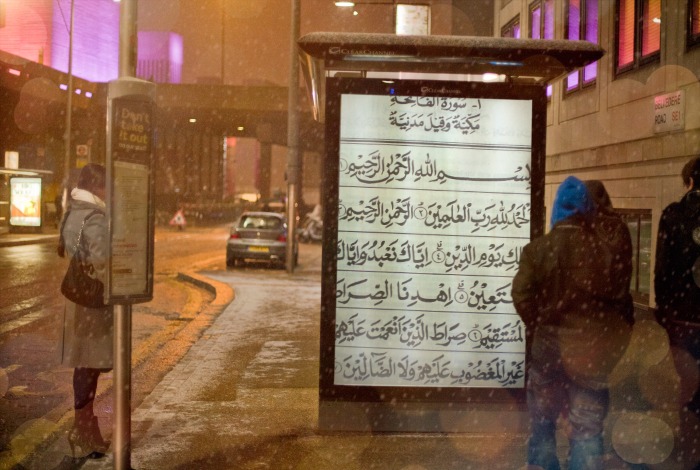 CLEAR CHANNEL
١- سُورَةُ الْفَاتِحَةِ
مَكِّيَّة وَقِيلَ مَدَنِيَّة
بِسْمِ اللهِ الرَّحْمٰنِ الرَّحِيْمِ ۝١
اَلْحَمْدُ لِلّٰهِ رَبِّ الْعٰلَمِيْنَ ۝٢ الرَّحْمٰنِ الرَّحِيْمِ ۝٣
مٰلِكِ يَوْمِ الدِّيْنِ ۝٤ اِيَّاكَ نَعْبُدُ وَاِيَّاكَ
نَسْتَعِيْنُ ۝٥ اِهْدِنَا الصِّرَاطَ
الْمُسْتَقِيْمَ ۝٦ صِرَاطَ الَّذِيْنَ اَنْعَمْتَ عَلَيْهِمْ
غَيْرِ الْمَغْضُوْبِ عَلَيْهِمْ وَلَا الضَّآلِّيْنَ ۝٧
Don't
take
it out
BELVEDERE
ROAD SE1